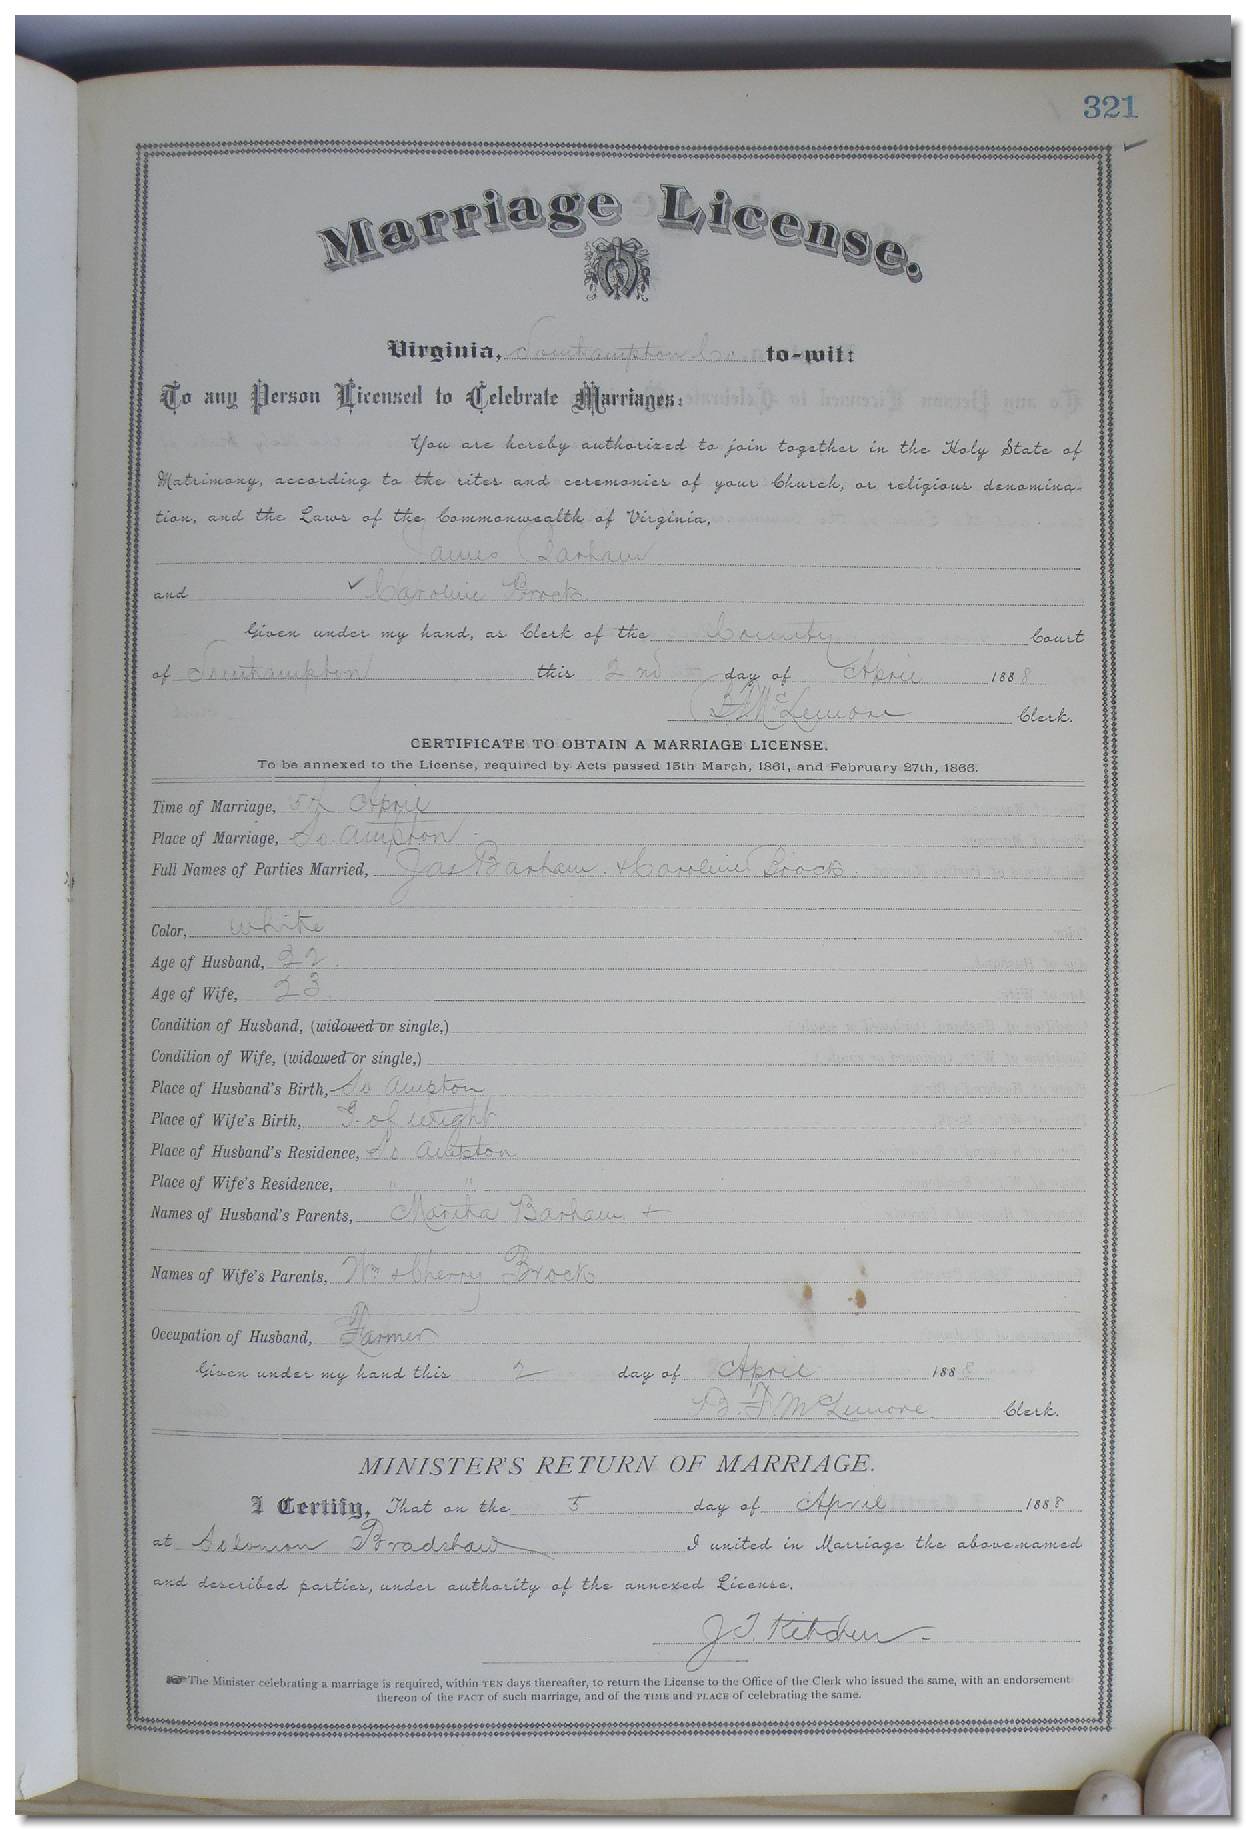 321
Marriage License.
Virginia, Southampton Co. to-wit:
To any Person Licensed to Celebrate Marriages:
You are hereby authorized to join together in the Holy State of
Matrimony, according to the rites and ceremonies of your Church, or religious denomina-
tion, and the Laws of the Commonwealth of Virginia,
James Barham
and ✓ Caroline Brock
Given under my hand, as Clerk of the County Court
of Southampton this 2nd day of April 1888
B F McLemore Clerk.
CERTIFICATE TO OBTAIN A MARRIAGE LICENSE.
To be annexed to the License, required by Acts passed 15th March, 1861, and February 27th, 1866.
Time of Marriage, 5th April
Place of Marriage, So ampton
Full Names of Parties Married, Jas Barham & Caroline Brock
Color, White
Age of Husband, 22
Age of Wife, 23
Condition of Husband, (widowed or single,)
Condition of Wife, (widowed or single,)
Place of Husband's Birth, So ampton
Place of Wife's Birth, I. of wight
Place of Husband's Residence, So ampton
Place of Wife's Residence, " "
Names of Husband's Parents, Martha Barham +
Names of Wife's Parents, Wm & Cherry Brock
Occupation of Husband, Farmer
Given under my hand this 2 day of April 1888
B. F McLemore Clerk.
MINISTER'S RETURN OF MARRIAGE.
I Certify, That on the 5 day of April 1888
at Solomon Bradshaw I united in Marriage the above-named
and described parties, under authority of the annexed License.
J T Kitchen
The Minister celebrating a marriage is required, within TEN days thereafter, to return the License to the Office of the Clerk who issued the same, with an endorsement
thereon of the FACT of such marriage, and of the TIME and PLACE of celebrating the same.